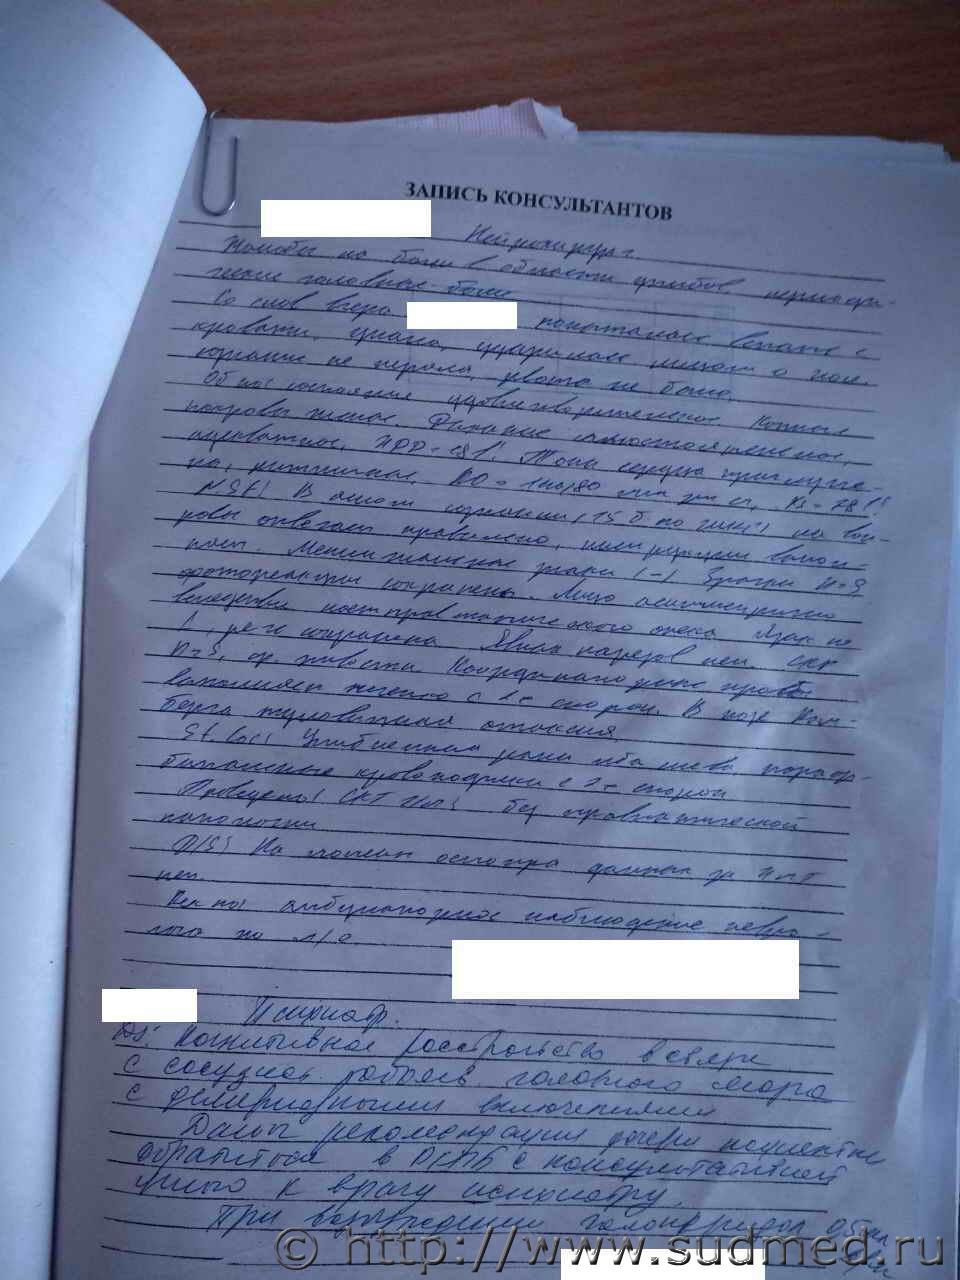 ЗАПИСЬ КОНСУЛЬТАНТОВ
Нейрохирург
Жалобы на боли в области ушибов, периоди-
ческие головные боли
Со слов вчера попыталась встать с
кровати, упала, ударилась лицом о пол.
сознание не теряла, рвота не было.
Общее состояние удовлетворительное. Кожные
покровы Дыхание самостоятельное,
адекватное, ЧДД-18 1'. Тоны сердца приглуше-
ны, ритмичные, АД-140/80 мм рт ст, Ps-78 1'
N.St: В ясном сознании, 15 б. по ШКГ, на воп-
росы отвечает правильно, инструкции выпол-
няет. Менингиальные знаки (-) Зрачки D=S
фотореакции сохранены. Лицо асимметрично
вследствии посттравматического отека Язык по
, речь сохранена Явных парезов нет. СХР
D=S, ср. живости. Координаторные пробы
выполняет с 2х сторон. В позе Ром-
берга туловищная атаксия.
St. loc: Ушибленная рана лба слева, параор-
битальные кровоподтеки с 2х сторон
Проведены: СКТ г/м: без травматической
патологии
D/S: На момент осмотра данных за ЧМТ
нет.
Рек-но: амбулаторное наблюдение невро-
лога по м/ж
Психиатр.
Ds: Когнитивное расстройство в связи
с сосудист. головного мозга
с включениями
Даны рекомендации дочери пациентки
обратиться в с консультативной
целью к врачу психиатру.
При возбуждении галоперидол 0,5 мл
© http://www.sudmed.ru